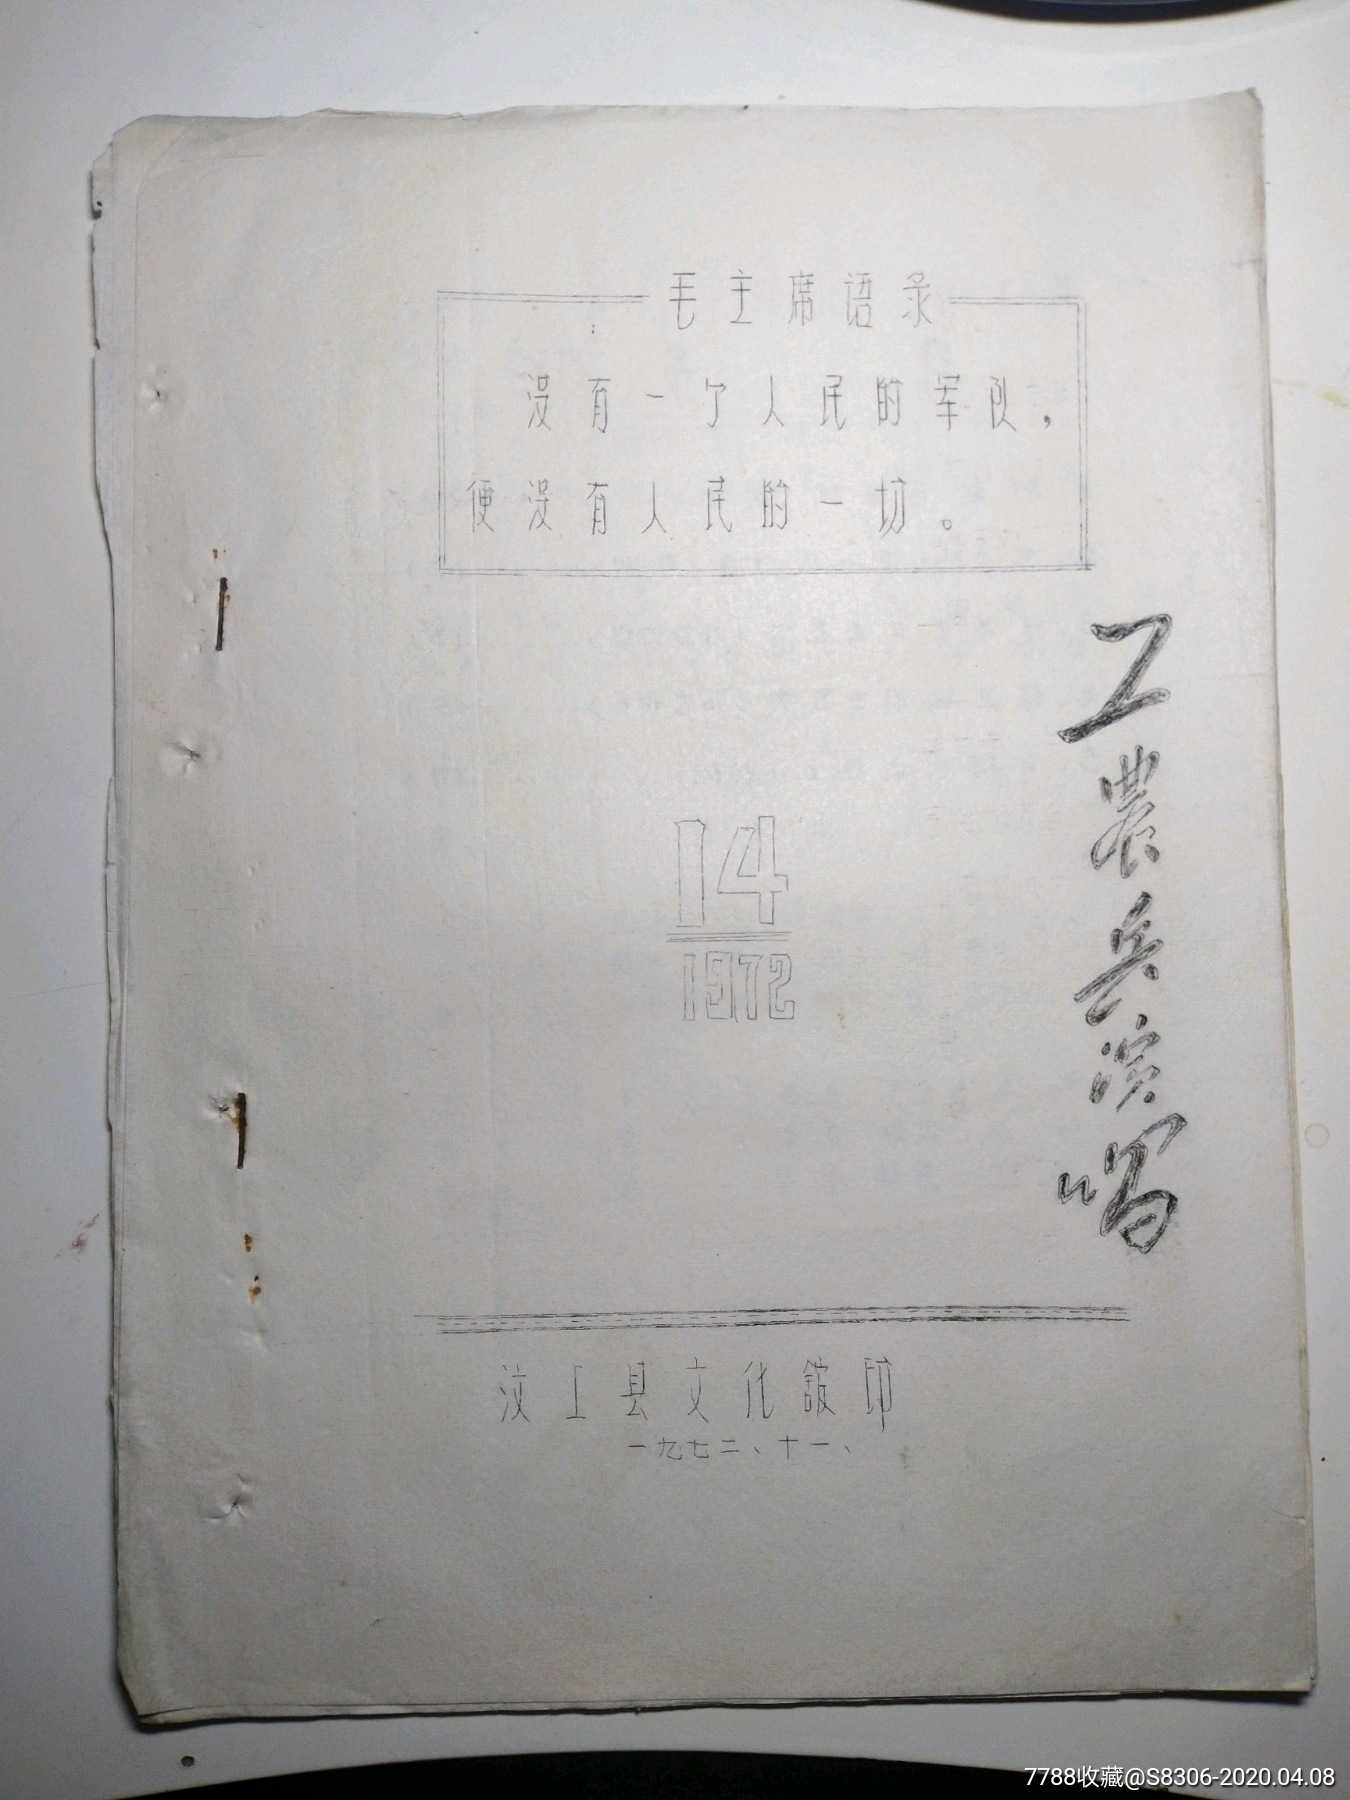 毛主席语录
没有一个人民的军队，
便没有人民的一切。
工農兵演唱
14
1972
汶上县文化館印
一九七二、十一、
7788收藏@S8306-2020.04.08